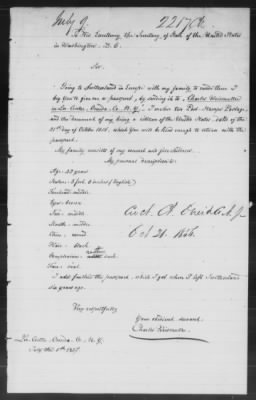 July 9.
22178
To His Excellency the Secretary of State of the United States
in Washington. D. C.
Sir.
Going to Switzerland in Europe with my family to reside there I
beg You to give me a passport, by sending it to Charles
in Lee Center, Oneida Co. N. Y. I enclose ten Post Stamps Postage
and the document of my being a citizen of the United States, date of the
21st day of October 1856, which You will be kind enough to return with the
passport.
My family consists of my consort and five children.
My personal description is:
Age:
Stature: 5 feet 6 inches (English)
Forehead: middle
Eyes: brown
Nose: middle
Mouth: middle
Chin: round
Hair: black
Complexion:
Face: oval
Oct 21. 1856.
I add further the passport, which I got when I left Switzerland
six years ago.
Very respectfully
Your obedient servant.
Charles
Lee Center. Oneida Co. N. Y.
July the